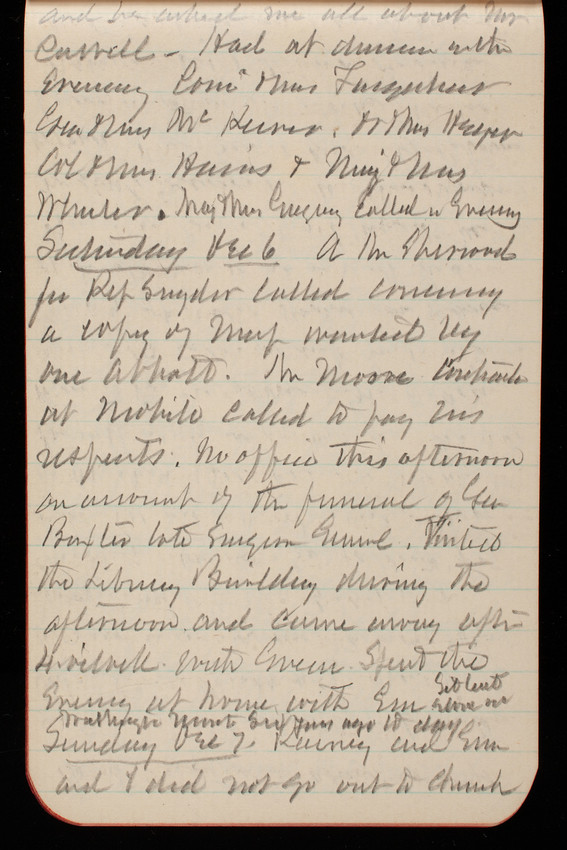 and he asked me all about Mr
Caswell - Had at dinner in the
Evening Com & Mrs Farquhar
Gen & Mrs McKeever, Dr & Mrs
Col & Mrs Hains & Maj & Mrs
Wheeler. Maj & Mrs Gregory called in Evening
Saturday Dec 6 A Mr Sherwood
for Rep Snyder called concerning
a copy of map wanted by
one Abbott. Mr Moore Contractor
at Mobile called to pay his
respects. No office this afternoon
on account of the funeral of Gen
Baxter late Surgeon Genrl. Visited
the Library Building during the
afternoon and came away after
4 o'clock with Green. Spent the
Evening at home with Em
Washington Monmt Six years ago to day
Sunday Dec 7. and Em
and I did not go out to church